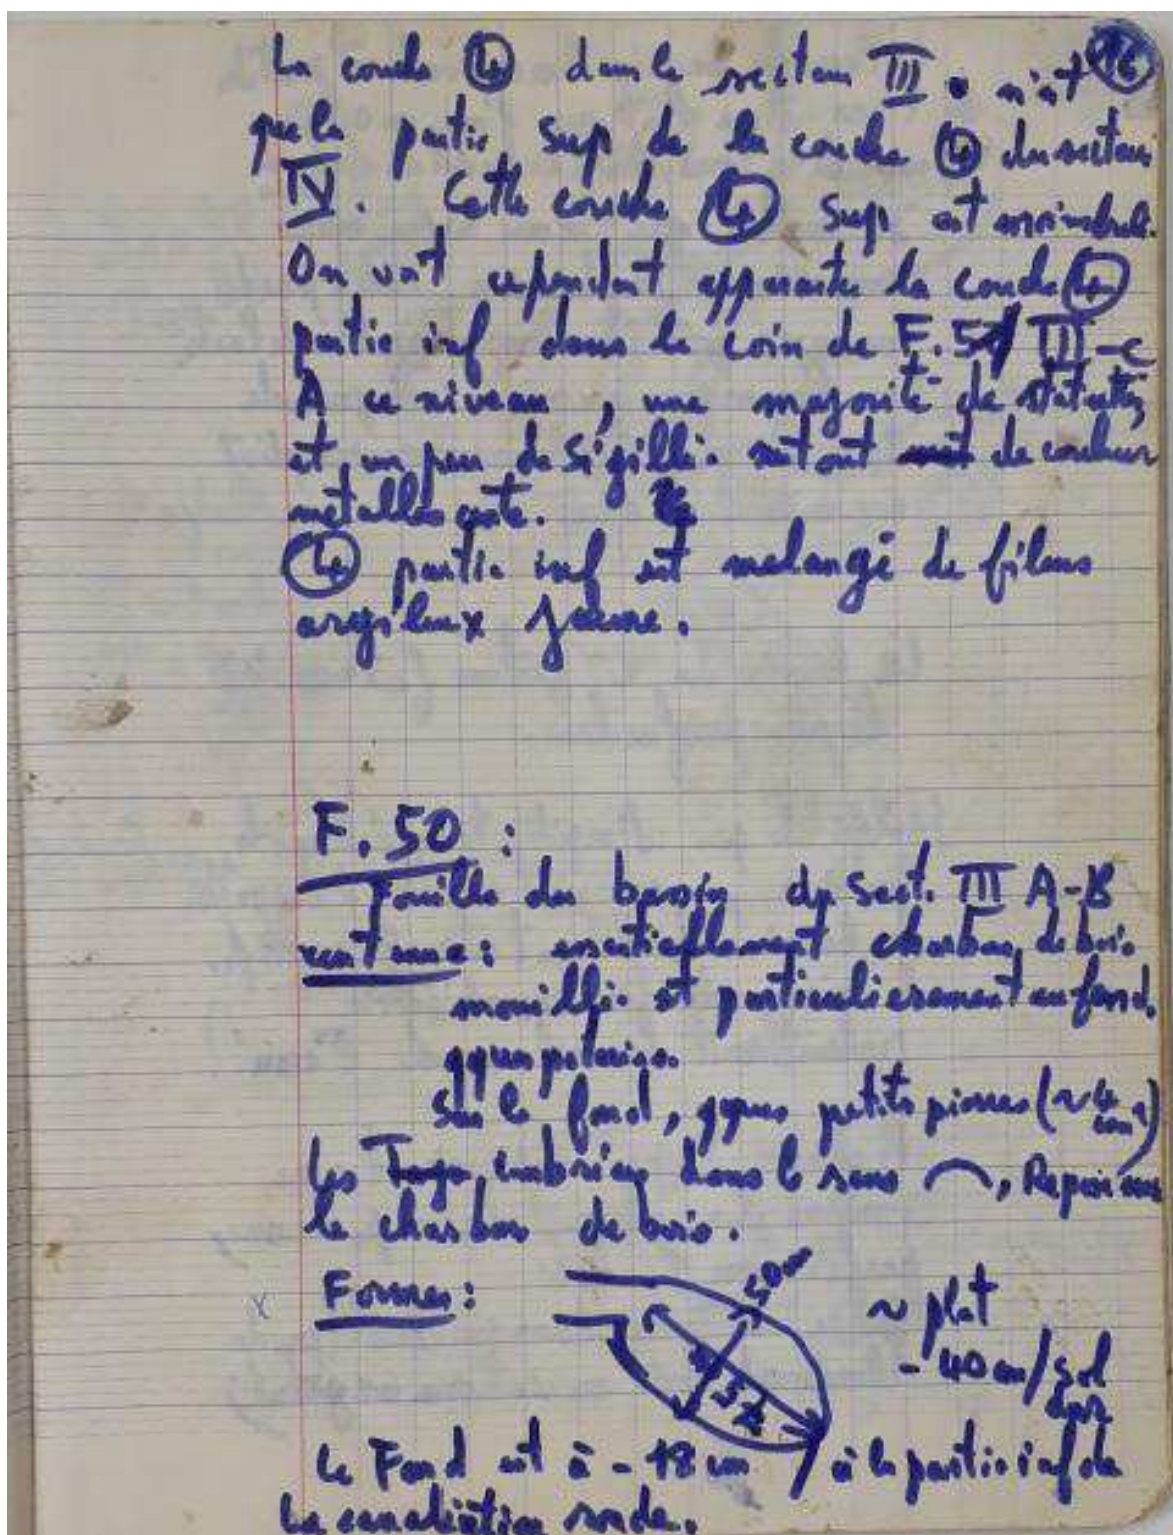 La couche ④ dans le secteur III. n'est ⑯
que la partie sup de la couche ④ du secteur
IV. Cette couche ④ sup est
On voit cependant apparaitre la couche ④
partie inf dans le coin de F.51 III-C
A ce niveau, une majorité de statuettes
et un peu de Sigillé. de couleur
metallescente.
④ partie inf est melangé de filons
argileux jaune.
F. 50 :
Fouille du bassin du Sect. III A-B
contenue : essentiellement charbon de bois
mouillé. et particulierement au fond.
qques poteries.
Sur le fond, qques petites pierres (~ 4 cm)
Les imbriquées dans le sens ⌒, Repose sur
le charbon de bois.
X Formes :
50 cm
~ plat
- 40 cm/sol
Le Fond est à - 18 cm à la partie inf de
la canalisation ronde.